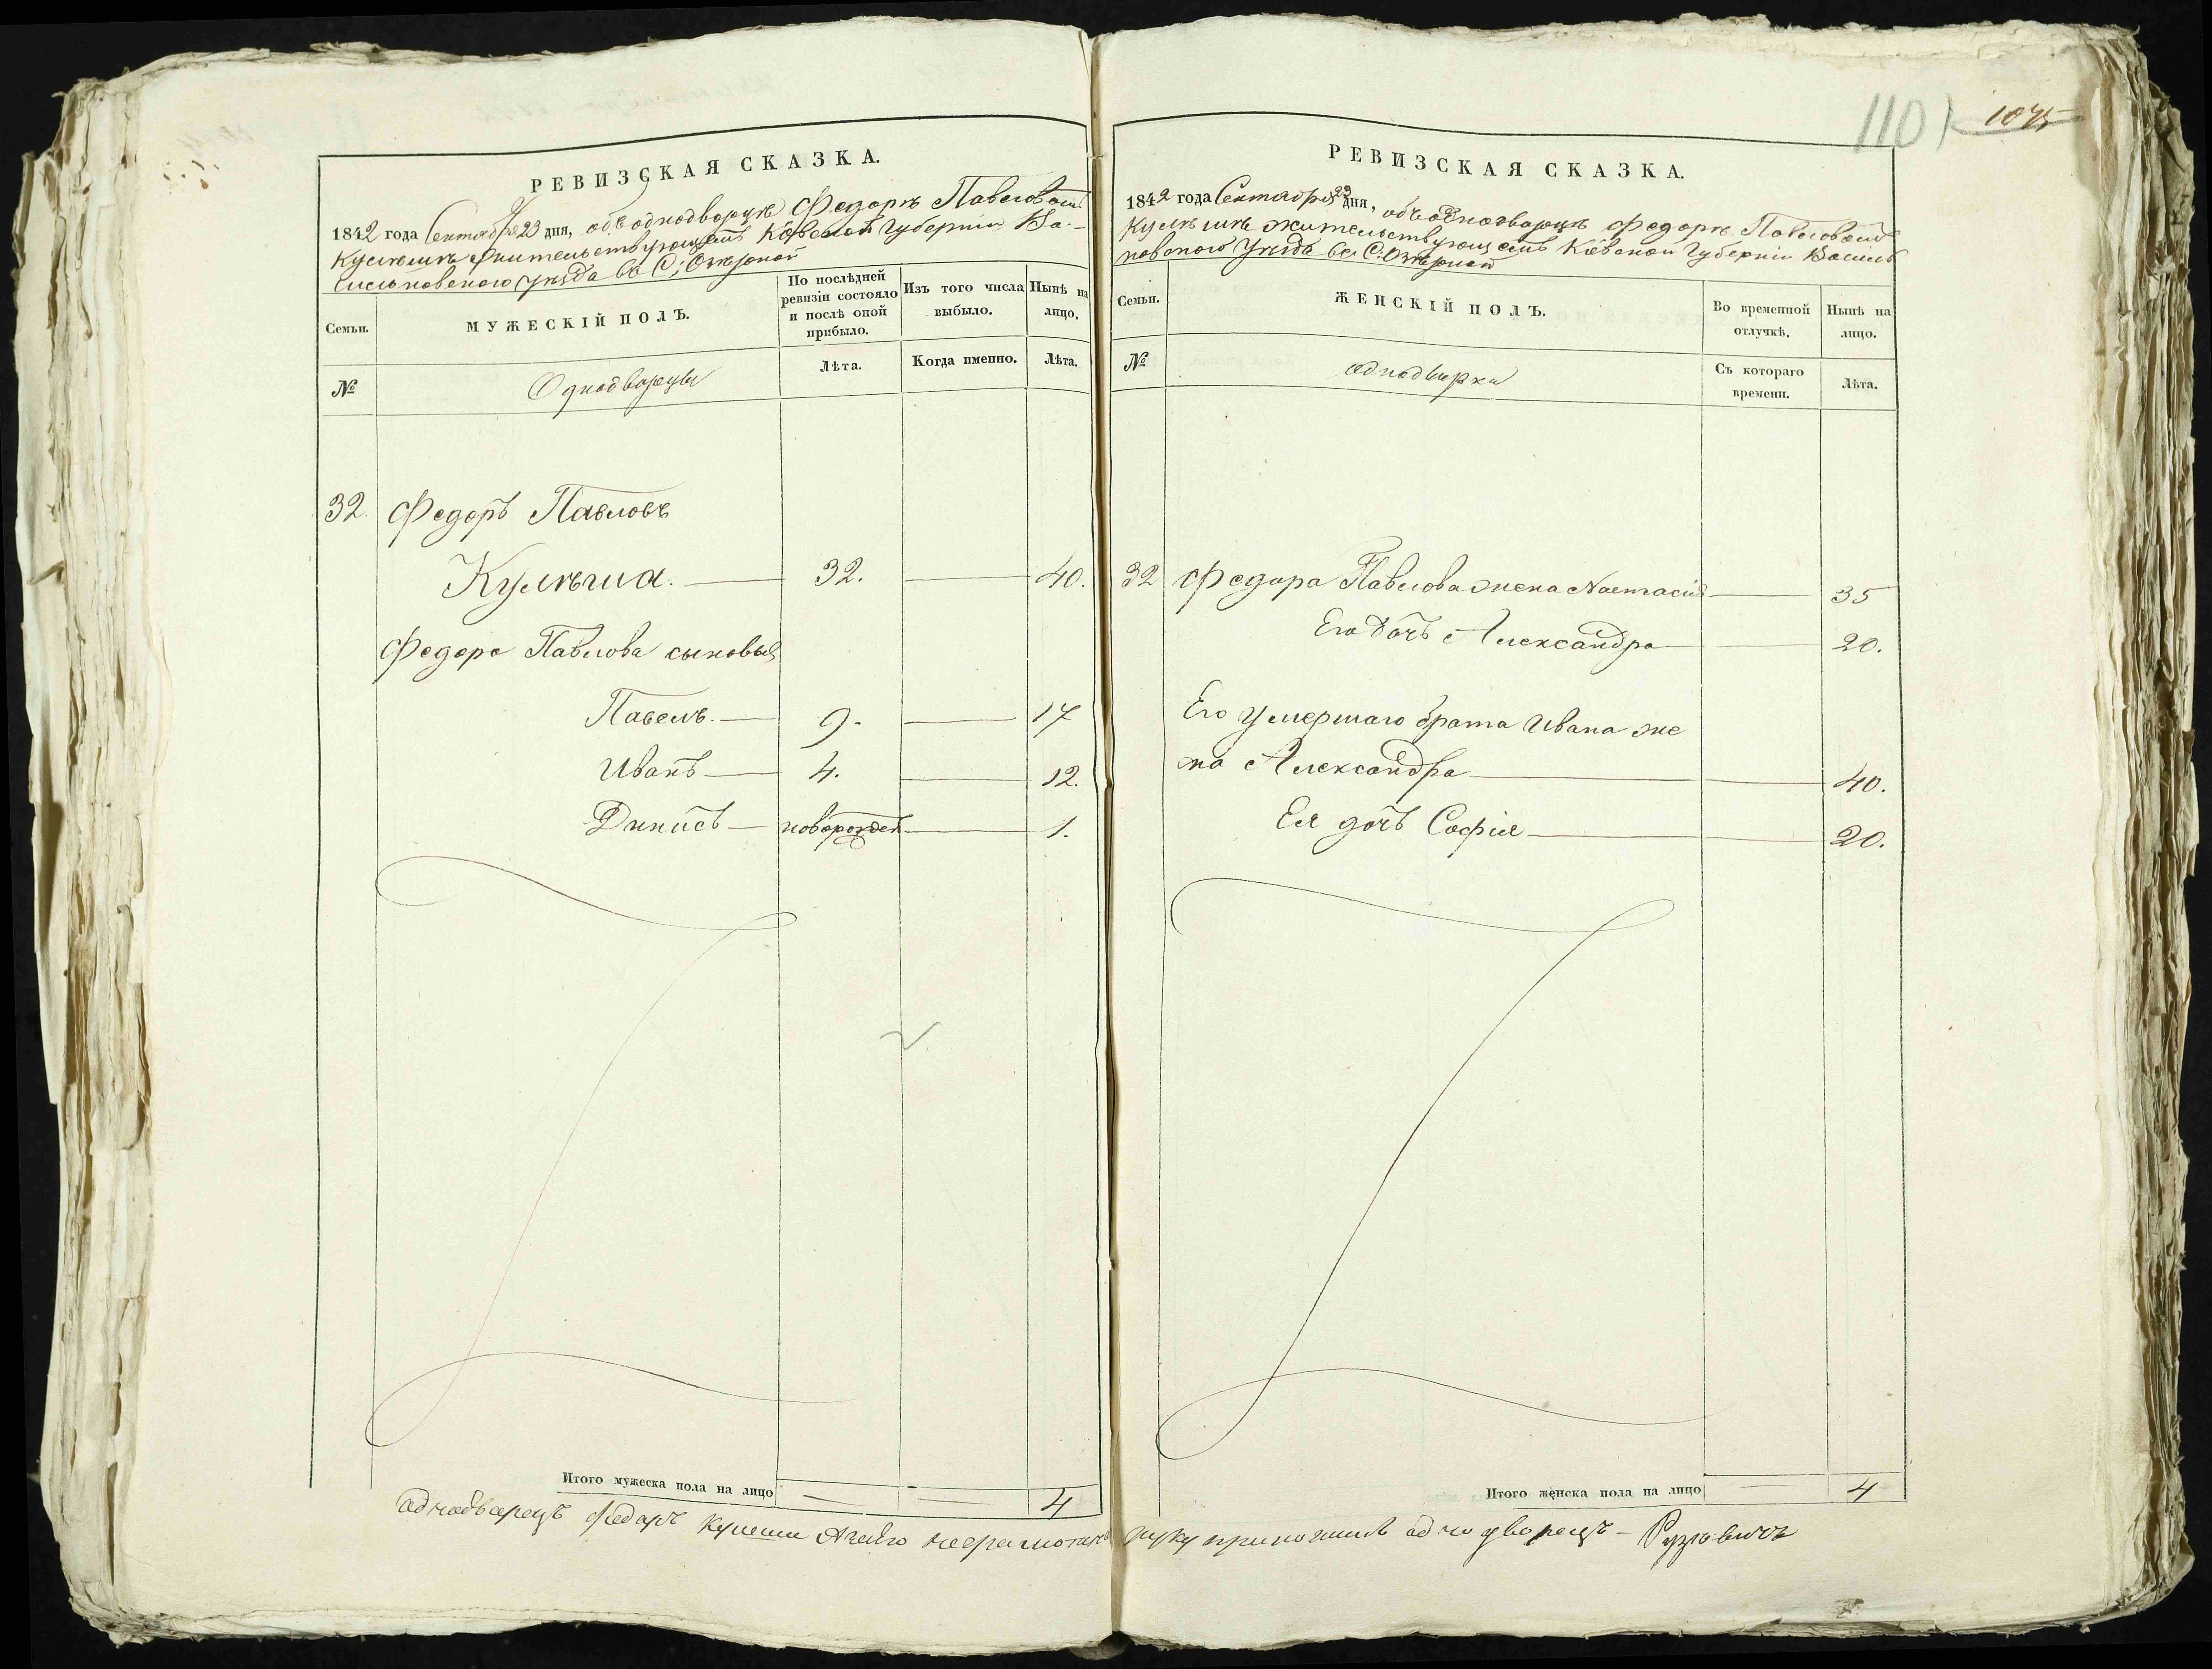 РЕВИЗСКАЯ СКАЗКА.
1842 года Сентября 23 дня, объ однодворце Федорѣ Павловомъ
Кулѣшѣ жительствующемъ Кіевской Губерніи Ва-
сильковскаго уѣзда въ С: Озѣрной
Семьи.
МУЖЕСКІЙ ПОЛЪ.
По послѣдней
ревизіи состояло
и послѣ оной
прибыло.
Изъ того числа
выбыло.
Нынѣ на
лицо.
№
Однодворцы
Лѣта.
Когда именно.
Лѣта.
32. Федоръ Павловъ
Кулѣша. — 32. — 40.
Федора Павлова сыновья
Павелъ. — 9. — 17
Иванъ — 4. — 12.
Динисъ — новорожден — 1.
Итого мужеска пола на лицо — 4
аднадварецъ Федаръ Кулеша неграмотан
110
1075
РЕВИЗСКАЯ СКАЗКА.
1842 года Сентября 23 дня, объ однодворцѣ Федорѣ Павловомъ
Кулѣшѣ жительствующемъ Кіевской Губерніи Василь
ковскаго уѣзда въ С: Озѣрной
Семьи.
ЖЕНСКІЙ ПОЛЪ.
Во временной
отлучкѣ.
Нынѣ на
лицо.
№
однодворки
Съ котораго
времени.
Лѣта.
32 Федора Павлова жена Настасія — 35
Его дочь Александра — 20.
Его умершаго брата Ивана же
на Александра — 40.
Ея дочь Софія — 20.
Итого женска пола на лицо — 4
руку приложилъ аднодворецъ —